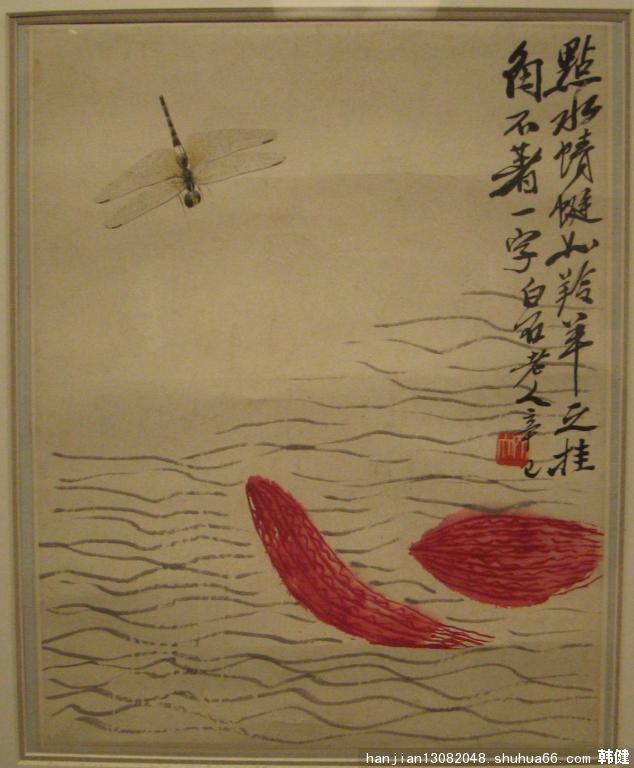 點水蜻蜓如羚羊之挂
角不著一字白石老人辛巳
hanjian13082048.shuhua66.com 韩健